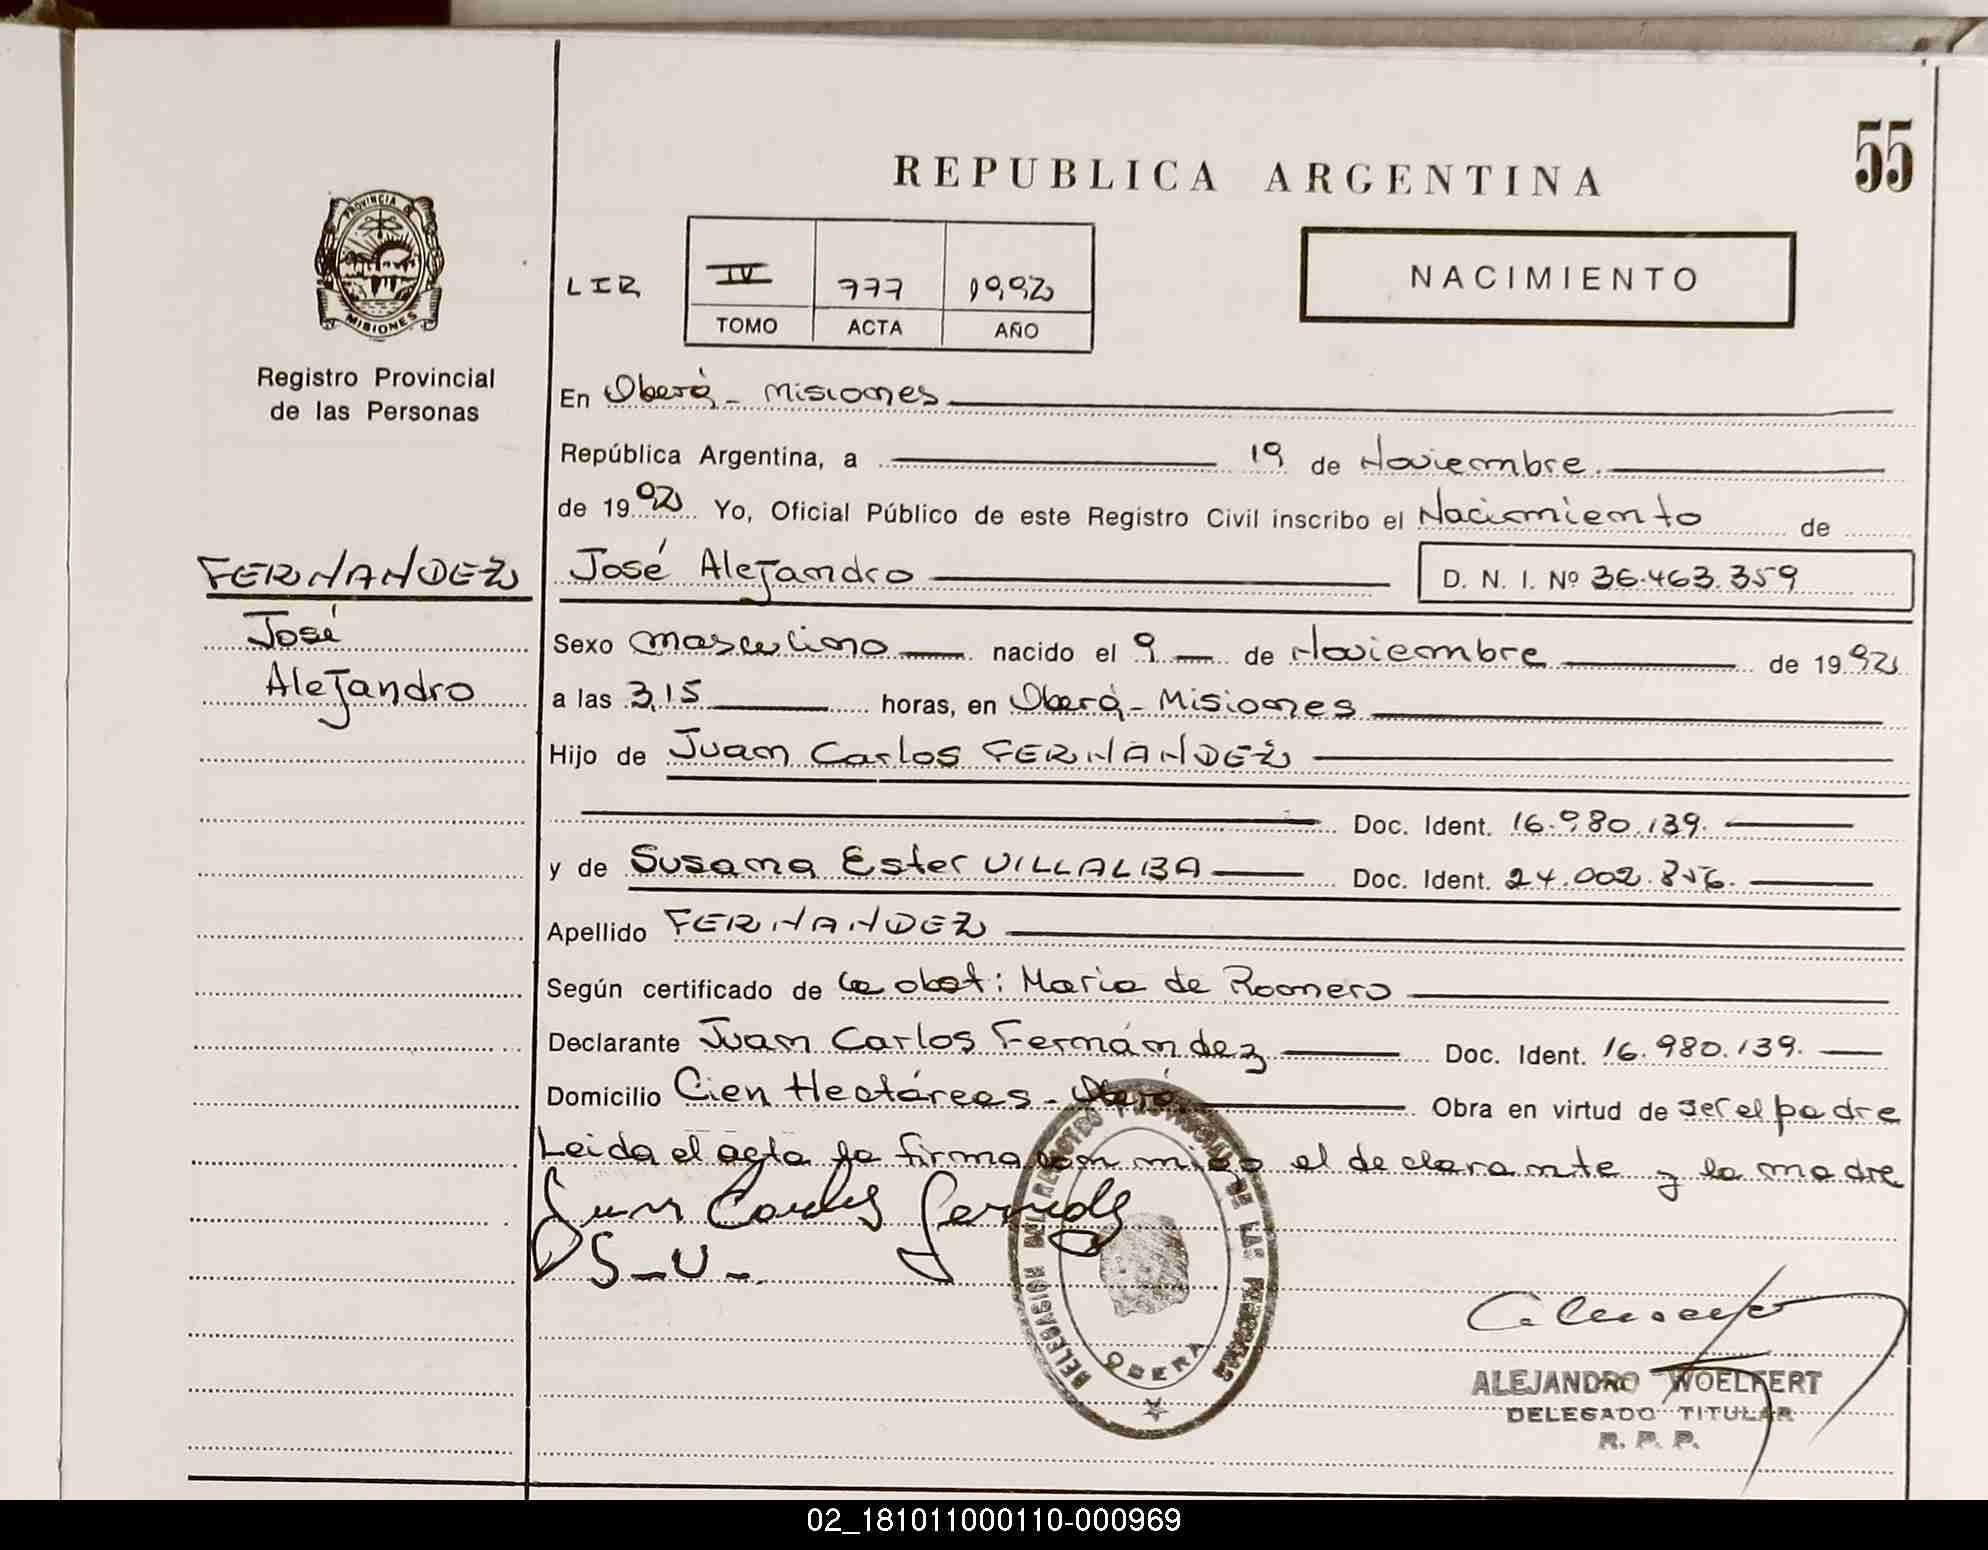 55
REPUBLICA ARGENTINA
PROVINCIA DE
MISIONES
Registro Provincial
de las Personas
LIR
IV 777 1992
TOMO ACTA AÑO
NACIMIENTO
En Oberá - Misiones
República Argentina, a 19 de Noviembre
de 1992 Yo, Oficial Público de este Registro Civil inscribo el Nacimiento de
FERNANDEZ
José
Alejandro
José Alejandro D. N. I. Nº 36.463.359
Sexo masculino nacido el 9 de Noviembre de 1992
a las 3,15 horas, en Oberá - Misiones
Hijo de Juan Carlos FERNANDEZ
Doc. Ident. 16.980.139.
y de Susana Ester VILLALBA Doc. Ident. 24.002.856.
Apellido FERNANDEZ
Según certificado de la obst: Maria de Romero
Declarante Juan Carlos Fernández Doc. Ident. 16.980.139.
Domicilio Cien Hectáreas - Oberá Obra en virtud de ser el padre
Leida el acta la firman con migo el declarante y la madre
Juan Carlos
S-V-
DELEGACION DEL REGISTRO PROVINCIAL DE LAS PERSONAS
OBERA
ALEJANDRO WOELFERT
DELEGADO TITULAR
R. P. P.
02_181011000110-000969